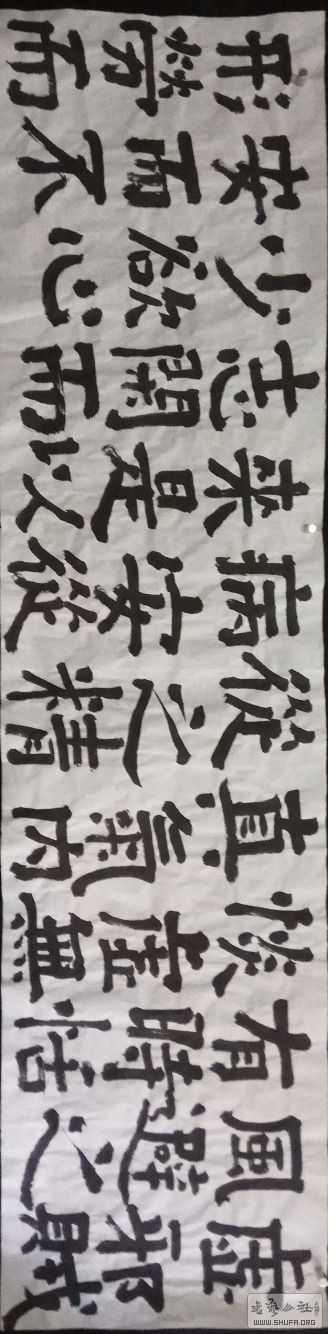 虛邪賊
風避之
有時恬
惔虛無
真氣内
從之精
病安從
來是以
志閑而
少欲心
安而不
形勞而
书法公社
WWW.SHUFA.ORG